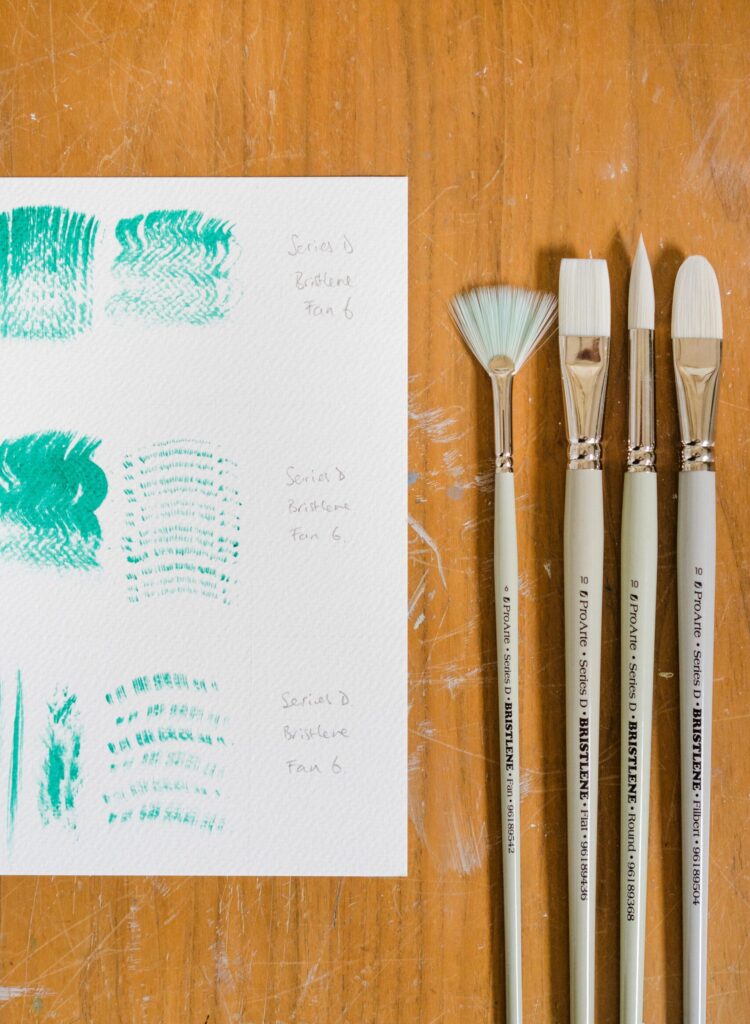 Series D
Bristlene
Fan 6
Series D
Bristlene
Fan 6.
Series D
Bristlene
Fan 6
6 ProArte • Series D • BRISTLENE • Fan • 96189542
10 ProArte • Series D • BRISTLENE • Flat • 96189436
10 ProArte • Series D • BRISTLENE • Round • 96189368
10 ProArte • Series D • BRISTLENE • Filbert • 96189504